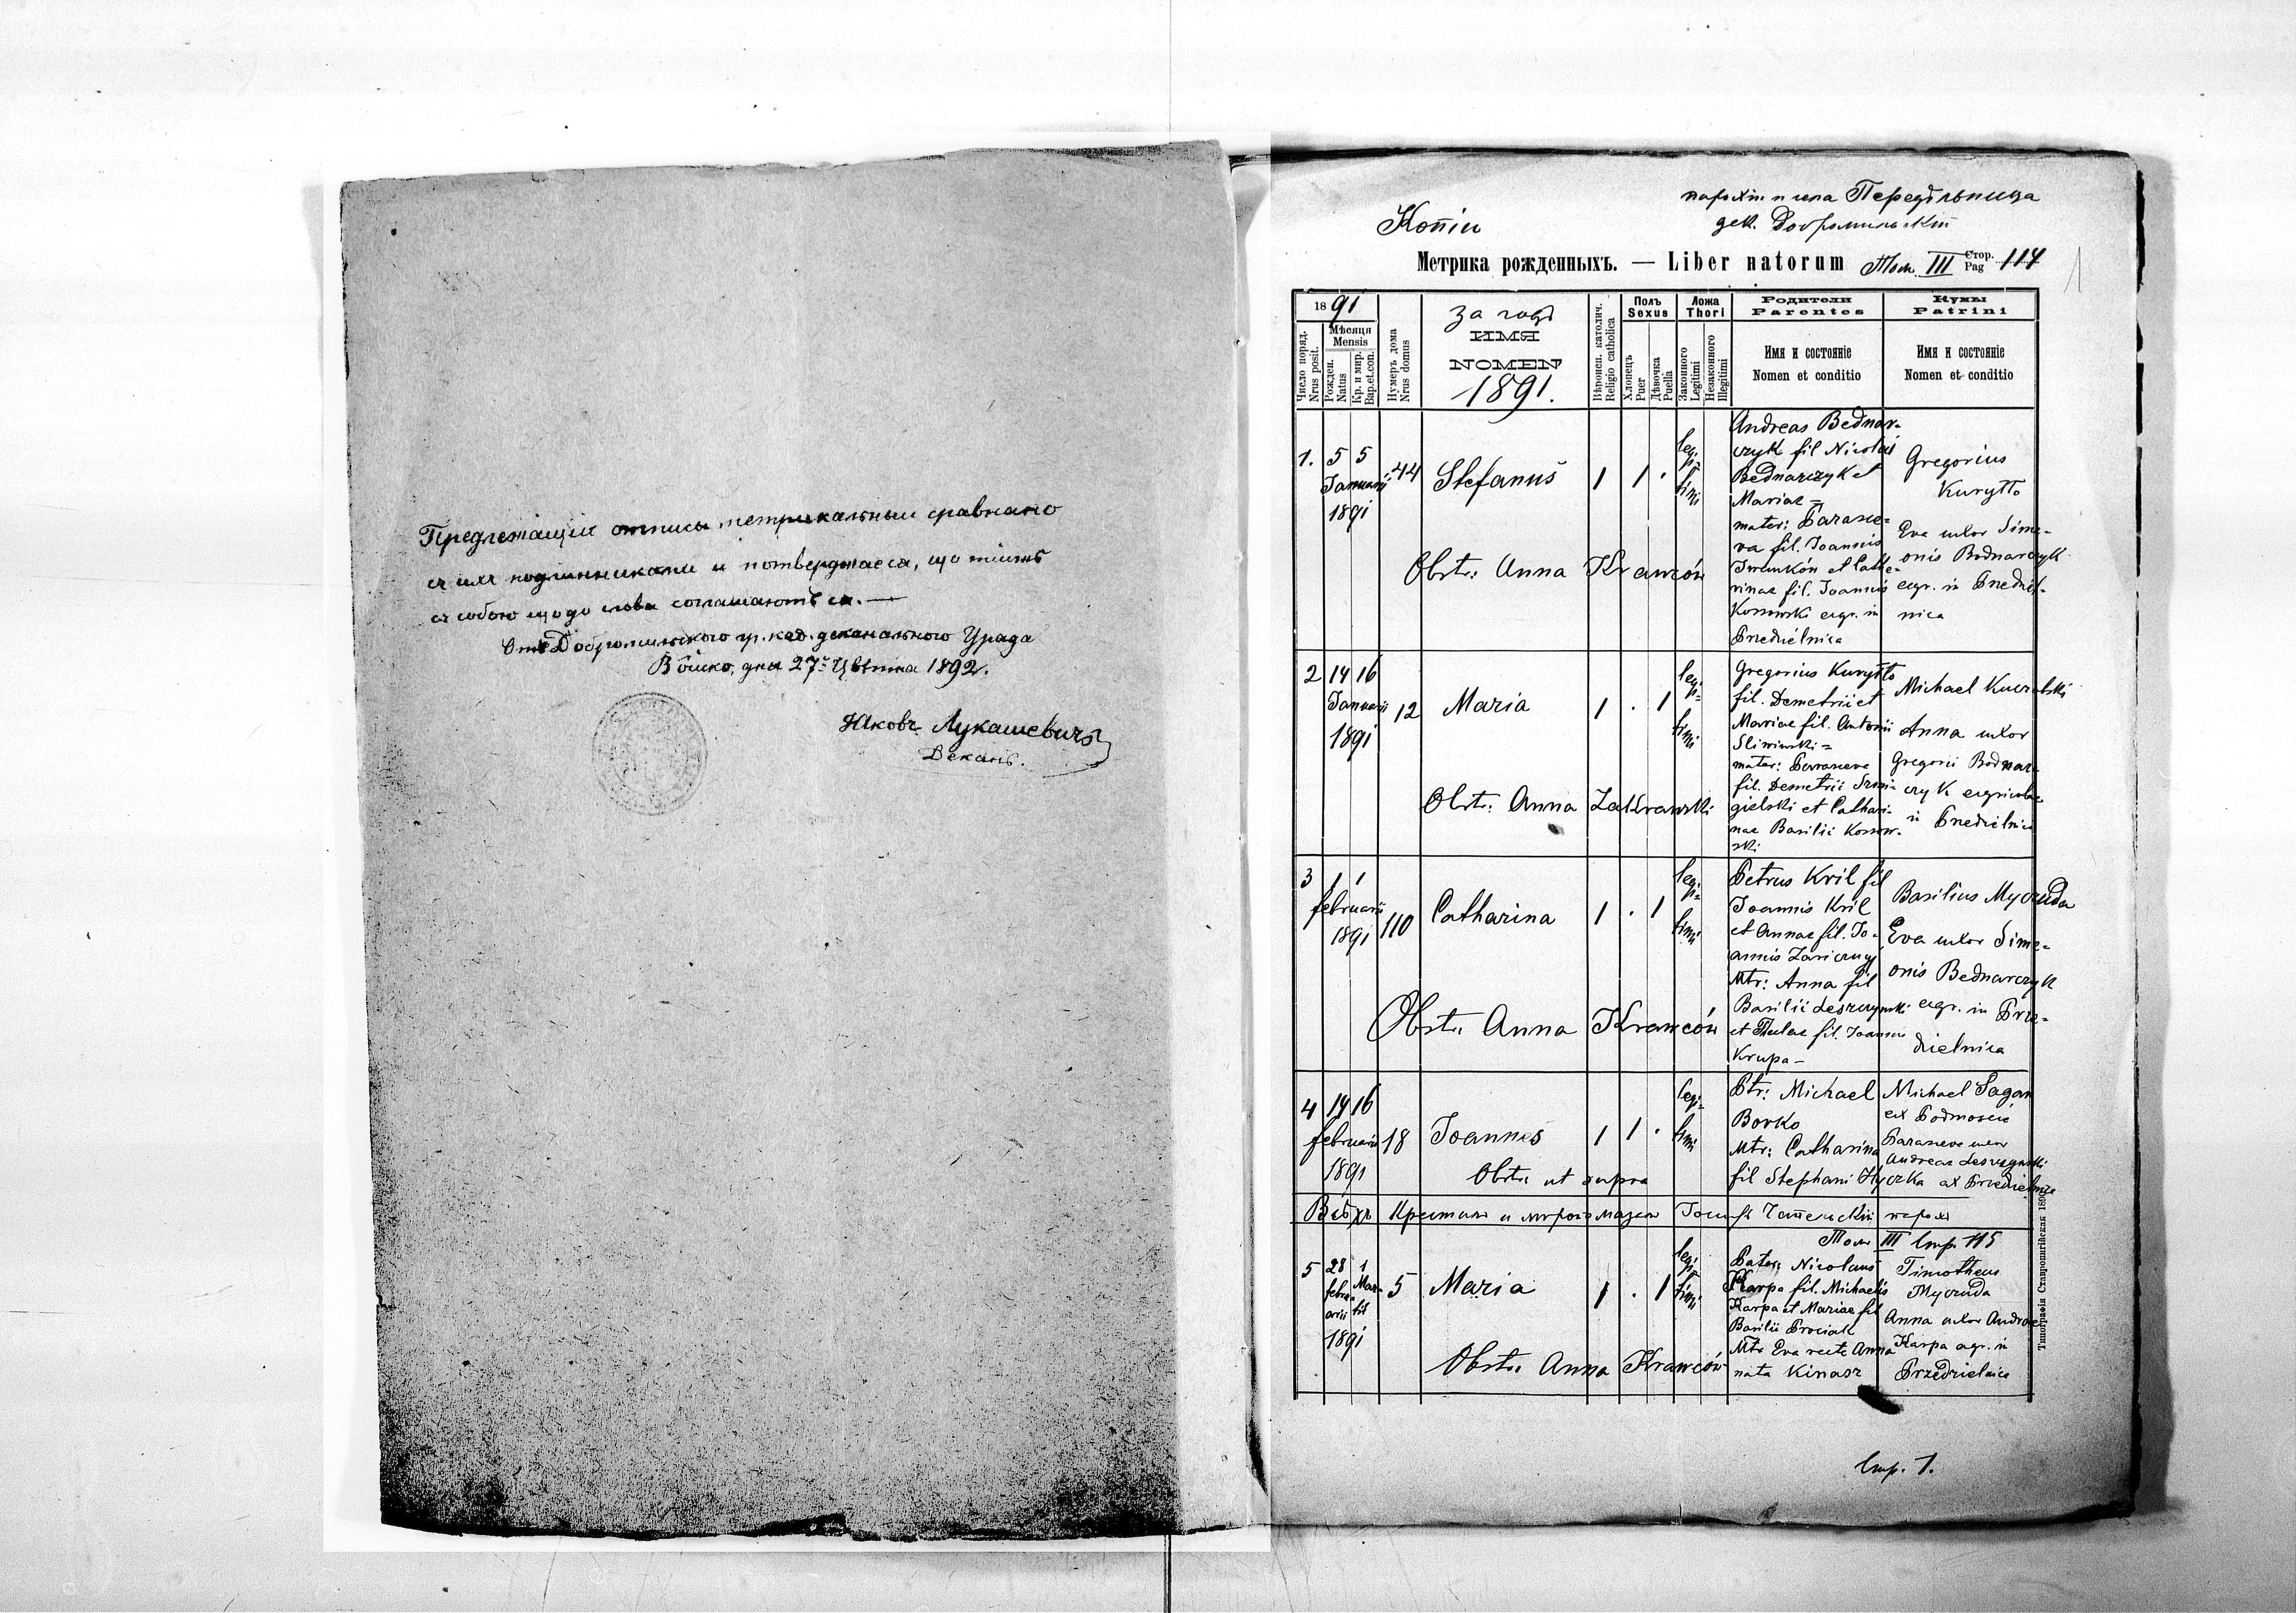 Предлежащіи отписы метрикальныи сравнано
съ ихъ подлинниками и потверджаеся, що тіижъ
съ собою щодо слова соглашаютъ ся. —
Отъ Добромильского гр. кат. деканального Уряда
Войско, дня 27. Цвѣтня 1892.
Яковъ Лукашевичъ
Деканъ.
парохіи и села Передѣльница
дек. Добромильскій
Копія
Метрика рожденныхъ. — Liber natorum Том. III Стор. Pag 114
1891
за годъ
1891.
Число поряд. Nrus posit.
Мѣсяця Mensis
Рожден. Natus
Кр. и мир. Bap. et con.
Нумеръ дома Nrus domus
ИМЯ
NOMEN
Вѣроисп. католич. Religio catholica
Полъ Sexus
Хлопецъ Puer
Дѣвочка Puella
Ложа Thori
Законного Legitimi
Незаконного Illegitimi
Родители Parentes
Имя и состояніе
Nomen et conditio
Кумы Patrini
Имя и состояніе
Nomen et conditio
1. 5 5 Januarii 1891 44 Stefanus 1 1 . legitimi
Andreas Bednar-
czyk fil Nicolai
Bednarczyk et
Mariae =
mater: Parasce-
va fil. Joannis
Iwanków et Cathe-
rinae fil. Joannis
Kossowski agr. in
Przedzielnica
Gregorius
Kuryłło
Eva uxor Sime-
onis Bednarczyk
agr. in Przedziel-
nica
Obstr: Anna Krawców
2 14 16 Januarii 1891 12 Maria 1 . 1 legitimi
Gregorius Kuryłło
fil. Demetrii et
Mariae fil. Antonii
Sliwinski =
mater: Parasceva
fil. Demetrii Szmi-
gielski et Cathari-
nae Basilii Kossow-
ski
Michael Kuczabski
Anna uxor
Gregorii Bednar-
czyk agricolae
in Przedzielnica
Obstr: Anna Zakrawski
3 1 1 februarii 1891 110 Catharina 1 . 1 legitimi
Petrus Kril fil
Joannis Kril
et Annae fil. Jo-
annis Zariczny
Mtr: Anna fil
Basilii Leszczynski
et Theclae fil. Joannis
Krupa —
Basilius Myczuda
Eva uxor Sime-
onis Bednarczyk
agr. in Prze-
dzielnica
Obstr: Anna Krawców
4 14 16 februarii 1891 18 Joannes 1 1 . legitimi
Ptr: Michael
Borko
Mtr: Catharina
fil Stephani Hyczka
Michael Sagan
ex Podmoscie
Parasceva uxor
Andreae Leszczynski
ex Przedzielnica
Obstr: ut supra
Всѣхъ Крестилъ и миропомазалъ Іосифъ парохъ
Том III Стр. 115
5 28 februarii 1 Martii 1891 5 Maria 1 . 1 legitimi
Pater: Nicolaus
Karpa fil. Michaelis
Karpa et Mariae fil
Basilii Prociak
Mtr Eva recte Anna
nata Kinasz
Timotheus
Myczuda
Anna uxor Andreae
Karpa agr. in
Przedzielnica
Obstr: Anna Krawców
Типографія Ставропигійская
Стр. 1.